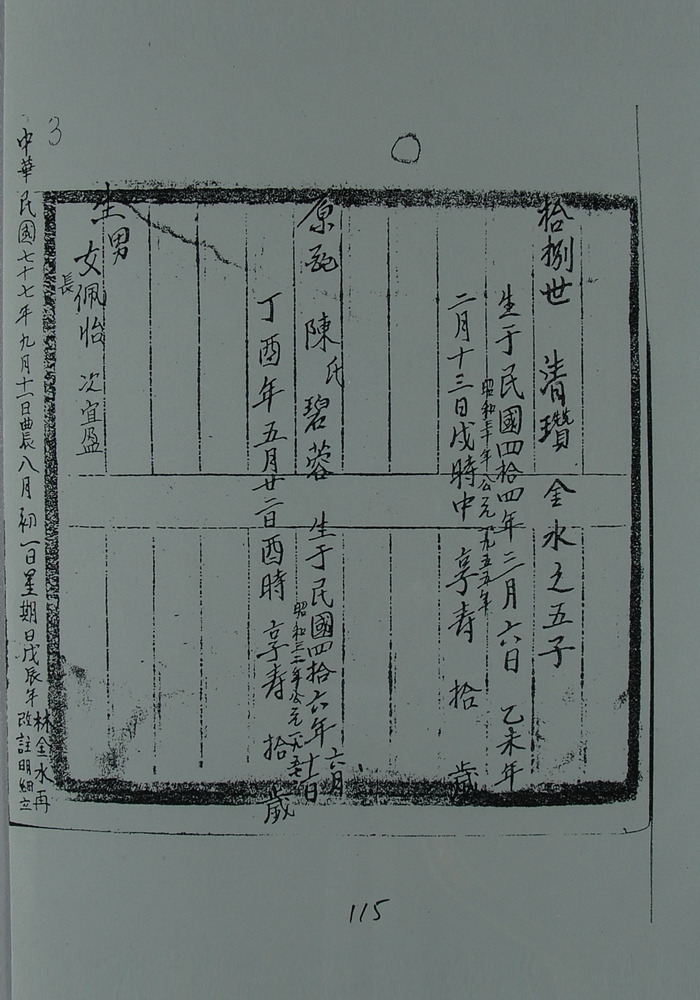 拾捌世 清瓚 金水之五子
生于民國四拾四年三月六日 乙未年
昭和三十年公元一九五五年
二月十三日戌時中 享寿 拾 歲
原配 陳氏碧蓉 生于民國四拾六年六月十一日
昭和三十二年公元一九五七
丁酉年五月廿二日酉時 享寿 拾 歲
生男
女長佩怡 次宜盈
中華民國七十七年九月十一日曲辰八月初一日星期日戊辰年林金水再改註明細立
3
115